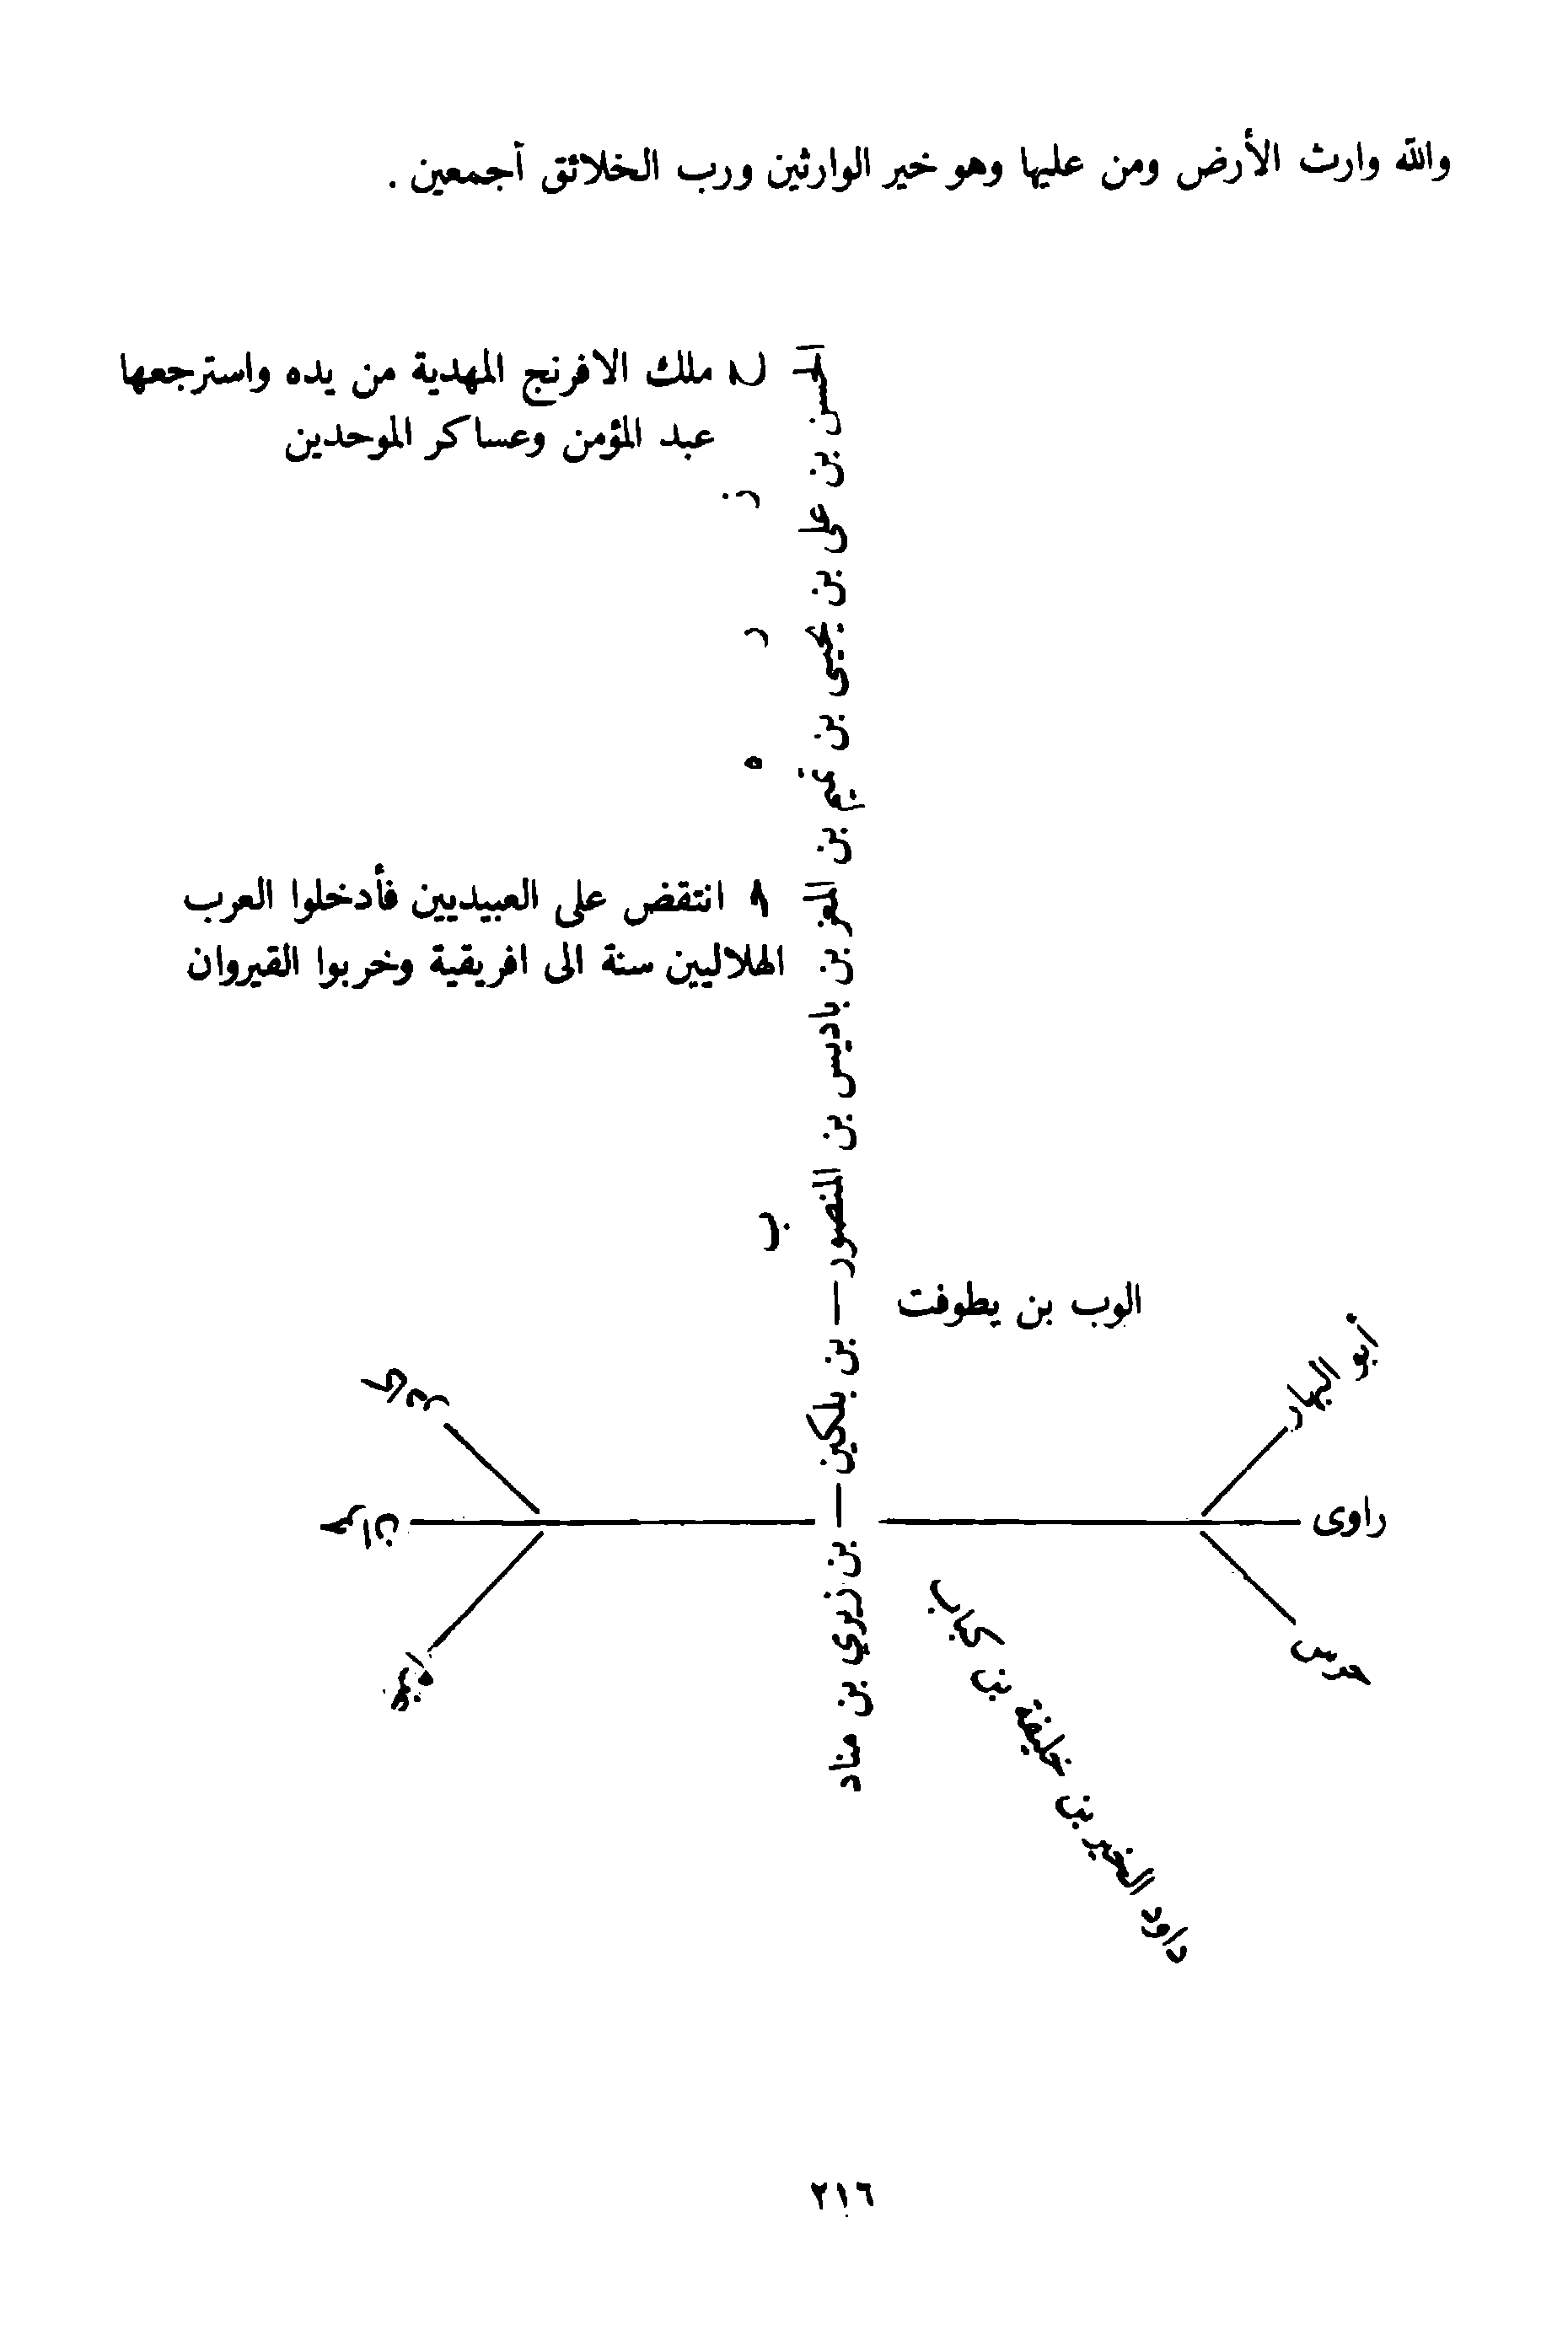 والله وارث الأرض ومن عليها وهو خير الوارثين ورب الخلائق آجمعين .
الحسن بن على بن يحيى بن تميم بن المعز بن باديس بن المنصور — بن بلكين — بن زيري بن مناد
ملك الافرنج المهدية من يده واسترجعها
عبد المؤمن وعساكر الموحدين
ز
د
ه
انتقض على العبيديين فأدخلوا العرب
الهلاليين سنة الى افريقية وخربوا القيروان
ب
الوب بن يطوفت
أبو البهار
راوى
داود الخير بن خليفة بن
٢١٦